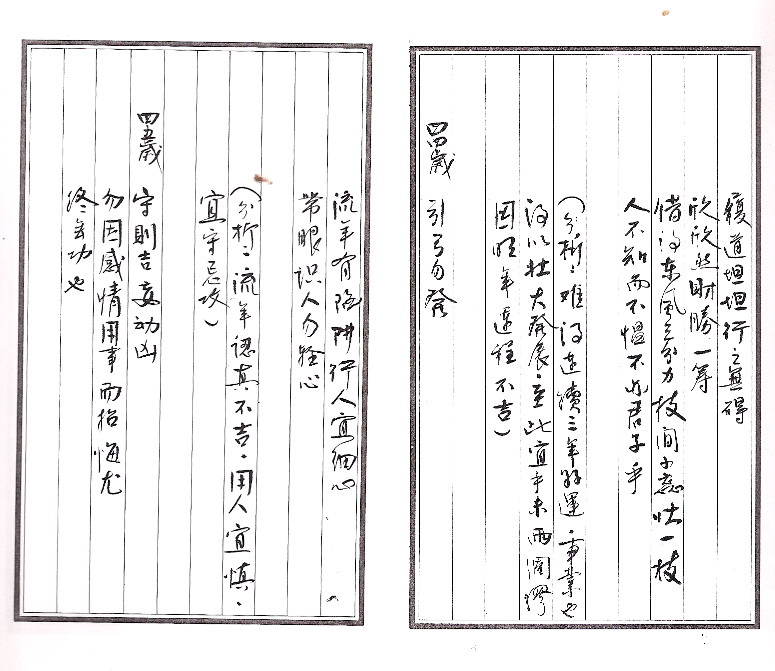 履道坦坦行之無碍
欣欣然財勝一籌
借得東風三分力枝間小蕊壯一枝
人不知而不慍不亦君子乎
(分析:難得連續三年好運,事業也
得以壯大發展,至此宜乎未雨綢繆
因旺年過程不吉)
四四歲 引弓勿發
流年有陷阱行人宜細心
常眼識人勿輕心
(分析:流年認真不吉,用人宜慎,
宜守忌攻)
四五歲 守則吉妄動凶
勿因感情用事而招悔尤
終無功也